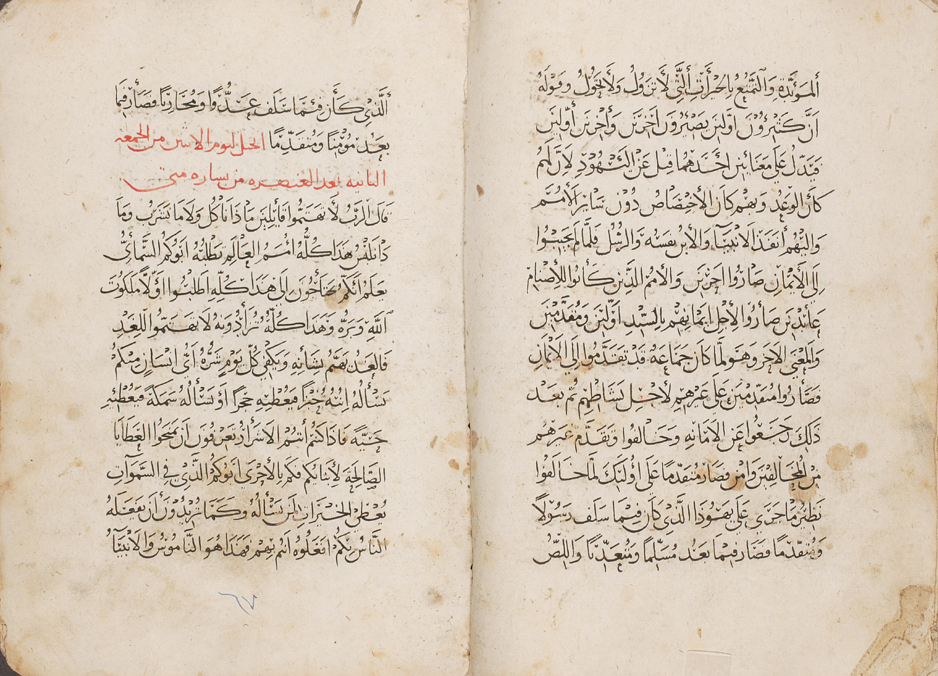 المؤبّدة والتمتع بالخيرات التي لا تزول ولا تحول وقوله
انّ كثيرون اوّلين يصيرون آخرين وآخرين أوّلين
فتدل على معنايين احدهما قيل عن اليهود لانّ لهم
كان الوعد وبهم كان الاختصاص دون ساير الامم
واليهم انفذ الانبياء والابن نفسه والرسل فلما لم يجيبوا
الى الايمان صاروا آخرين والامم الذين كانوا للاصنام
عابدين صاروا لاجل ايمانهم بالسيد اوّلين ومتقدّمين
والمعنى الاخر وهو لما كان جماعة قد تقدّموا الى الايمان
فصاروا متقدمين على غيرهم لاجل نشاطهم ثم بعد
ذلك رجعوا عن الامانه وخالفوا وتقدّم غيرهم
من المخالفين وآمن فصار متقدما على اولئك لما خالفوا
نظير ما جرى على يهوذا الذي كان فيما سلف رسولاً
ومتقدّما فصار فيما بعد مسلّما ومتعدّيا واللص
الّذي كان فيما سلف عدوّا ومحاربا فصار فيما
بعد مؤمنًا ومتقدّما انجيل ليوم الاثنين من الجمعه
الثانية بعد العنصره من بشاره متى
قال الرب لا تهتموا قايلين ماذا ناكل ولا ما نشرب وما
ذا نلبس هذا كلّه امم العالم تطلبه ابوكم السمايّ
عالم انكم تحتاجون الى هذا كلّه اطلبوا اوّلا ملكوت
الله وبرّه وهذا كلّه تزادونه لا تهتموا للغد
فالغد يهتم بشانه ويكفي كل يوم شرّه ايّ انسان منكم
يسأله ابنه خبزًا فيعطيه حجرًا او يسأله سمكة فيعطيه
حيّة فاذا كنتم انتم الاشرار تعرفون ان تمنحوا العطايا
الصّالحة لابنائكم فكم بالاحرى ابوكم الّذي في السموات
يعطي الخيرات لمن يسأله وكما تريدون أن يفعله
الناس بكم افعلوه انتم بهم فهذا هو الناموس والانبيّاء
٦٧